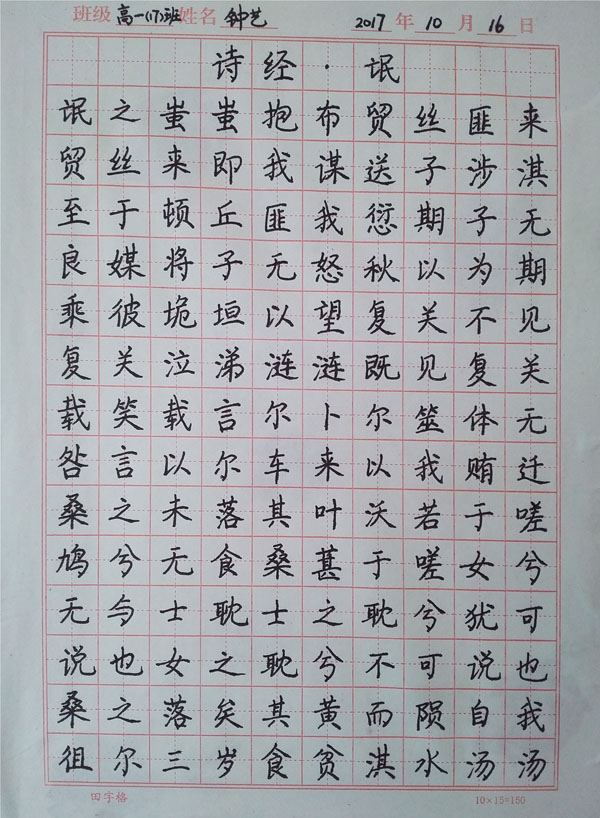 班级 高一(17)班 姓名 钟艺 2017 年 10 月 16 日
诗经·氓
氓之蚩蚩抱布贸丝匪来
贸丝来即我谋送子涉淇
至于顿丘匪我愆期子无
良媒将子无怒秋以为期
乘彼垝垣以望复关不见
复关泣涕涟涟既见复关
载笑载言尔卜尔筮体无
咎言以尔车来以我贿迁
桑之未落其叶沃若于嗟
鸠兮无食桑葚于嗟女兮
无与士耽士之耽兮犹可
说也女之耽兮不可说也
桑之落矣其黄而陨自我
徂尔三岁食贫淇水汤汤
田字格 10×15=150